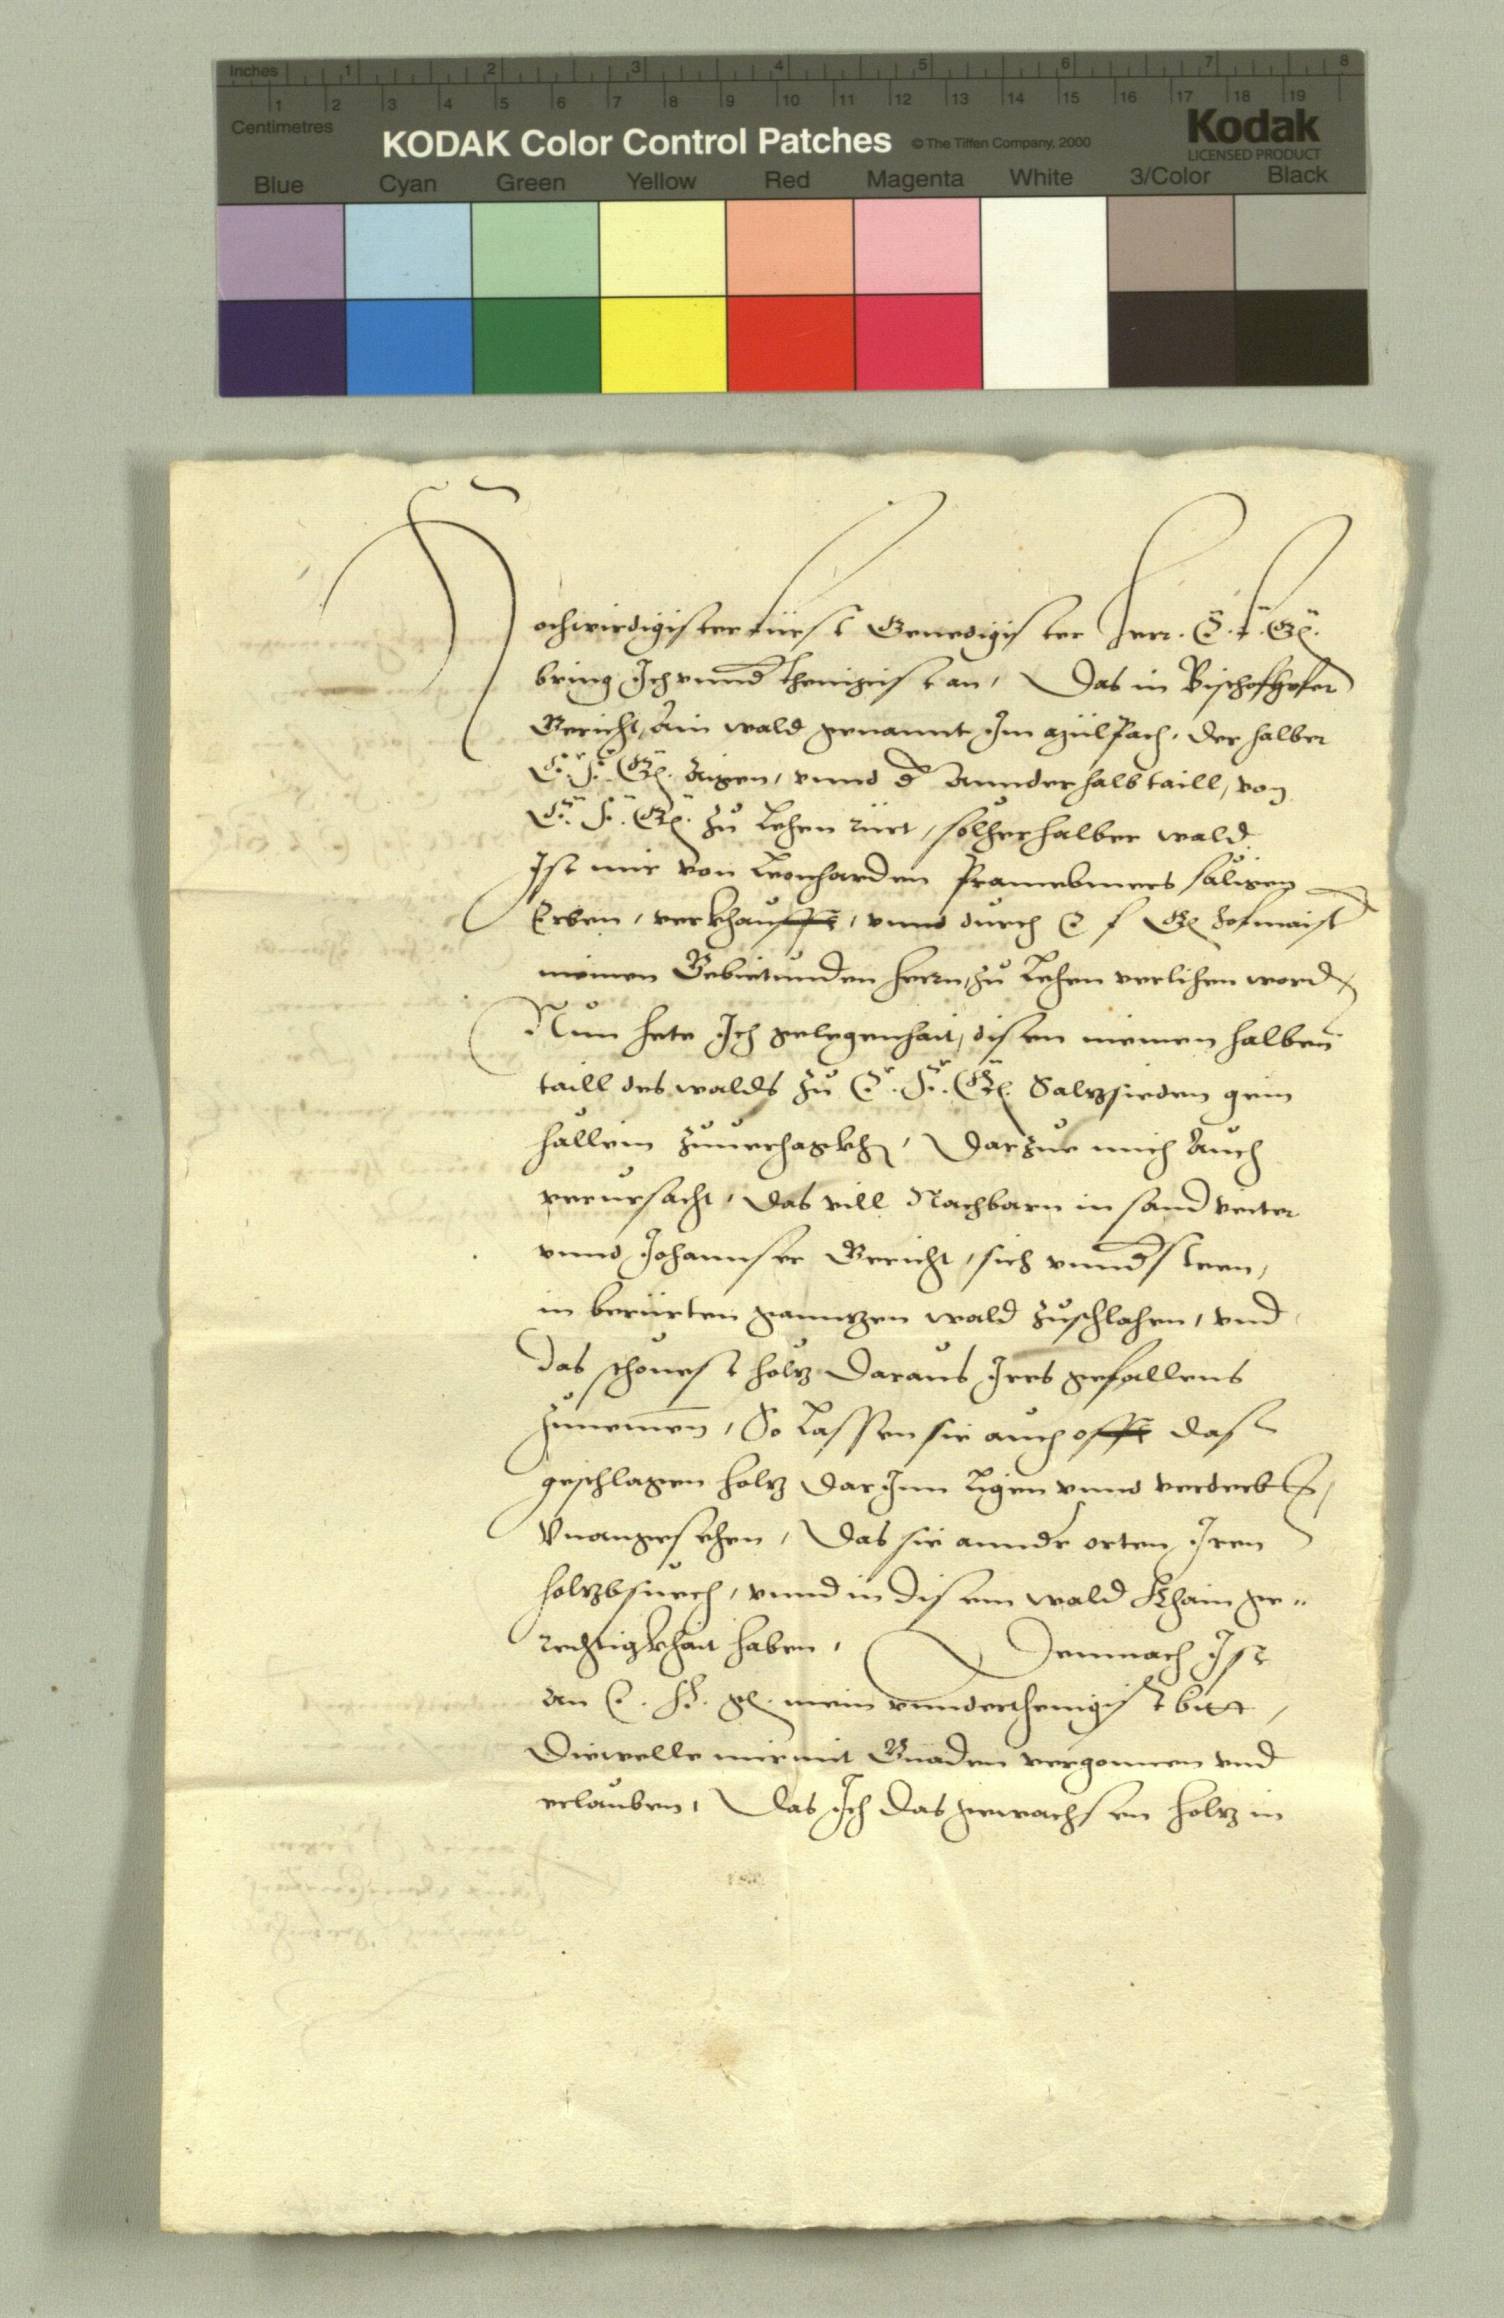 Inches 1 2 3 4 5 6 7 8
1 2 3 4 5 6 7 8 9 10 11 12 13 14 15 16 17 18 19
Centimetres
KODAK Color Control Patches © The Tiffen Company, 2000 Kodak
LICENSED PRODUCT
Blue Cyan Green Yellow Red Magenta White 3/Color Black
Hochwirdigister Fürst Genedigister Herr. E. F. G.
bring Ich vnnd thenigist an, Das in Bischofhofer
Gericht, Ain wald genannt Im der halber
E. F. G. Aigen, vnnd d Annder halb taill, von
E. F. G. zu Lehen rürt, solher halber wald
Ist mir von Leonharden säligen
Erben, verkhaufft, vnnd durch E F G Hofmaist
meinen Gebietunden herrn, zu Lehen verlihen word
Nun hete Ich gelegenhait, disen meinen halben
taill des walds zu E. F. G. Salzsieden gein
hallein zuuerhagkhen, Darzue mich Auch
verursacht, das vill Nachbarn in sand veiter
vnnd Johannser Gericht, sich vnndsteen,
in berürten ganntzen wald zuschlahen, vnd
das schonest holz daraus Ires gefallens
zunemen, So Lassen sie auch offt das
geschlagen holz dar Inn Ligen vnnd verderb
Vnangesehen, Das sie annder orten Iren
holzbsuech, vnnd in disem wald Khain ge„
rechtigkhait haben, Demnach Ist
an E. F. g. mein vnnderthenigist bitt,
Die welle mir mit Gnaden vergonnen vnd
erlauben, Das Ich das gewachsen holz in